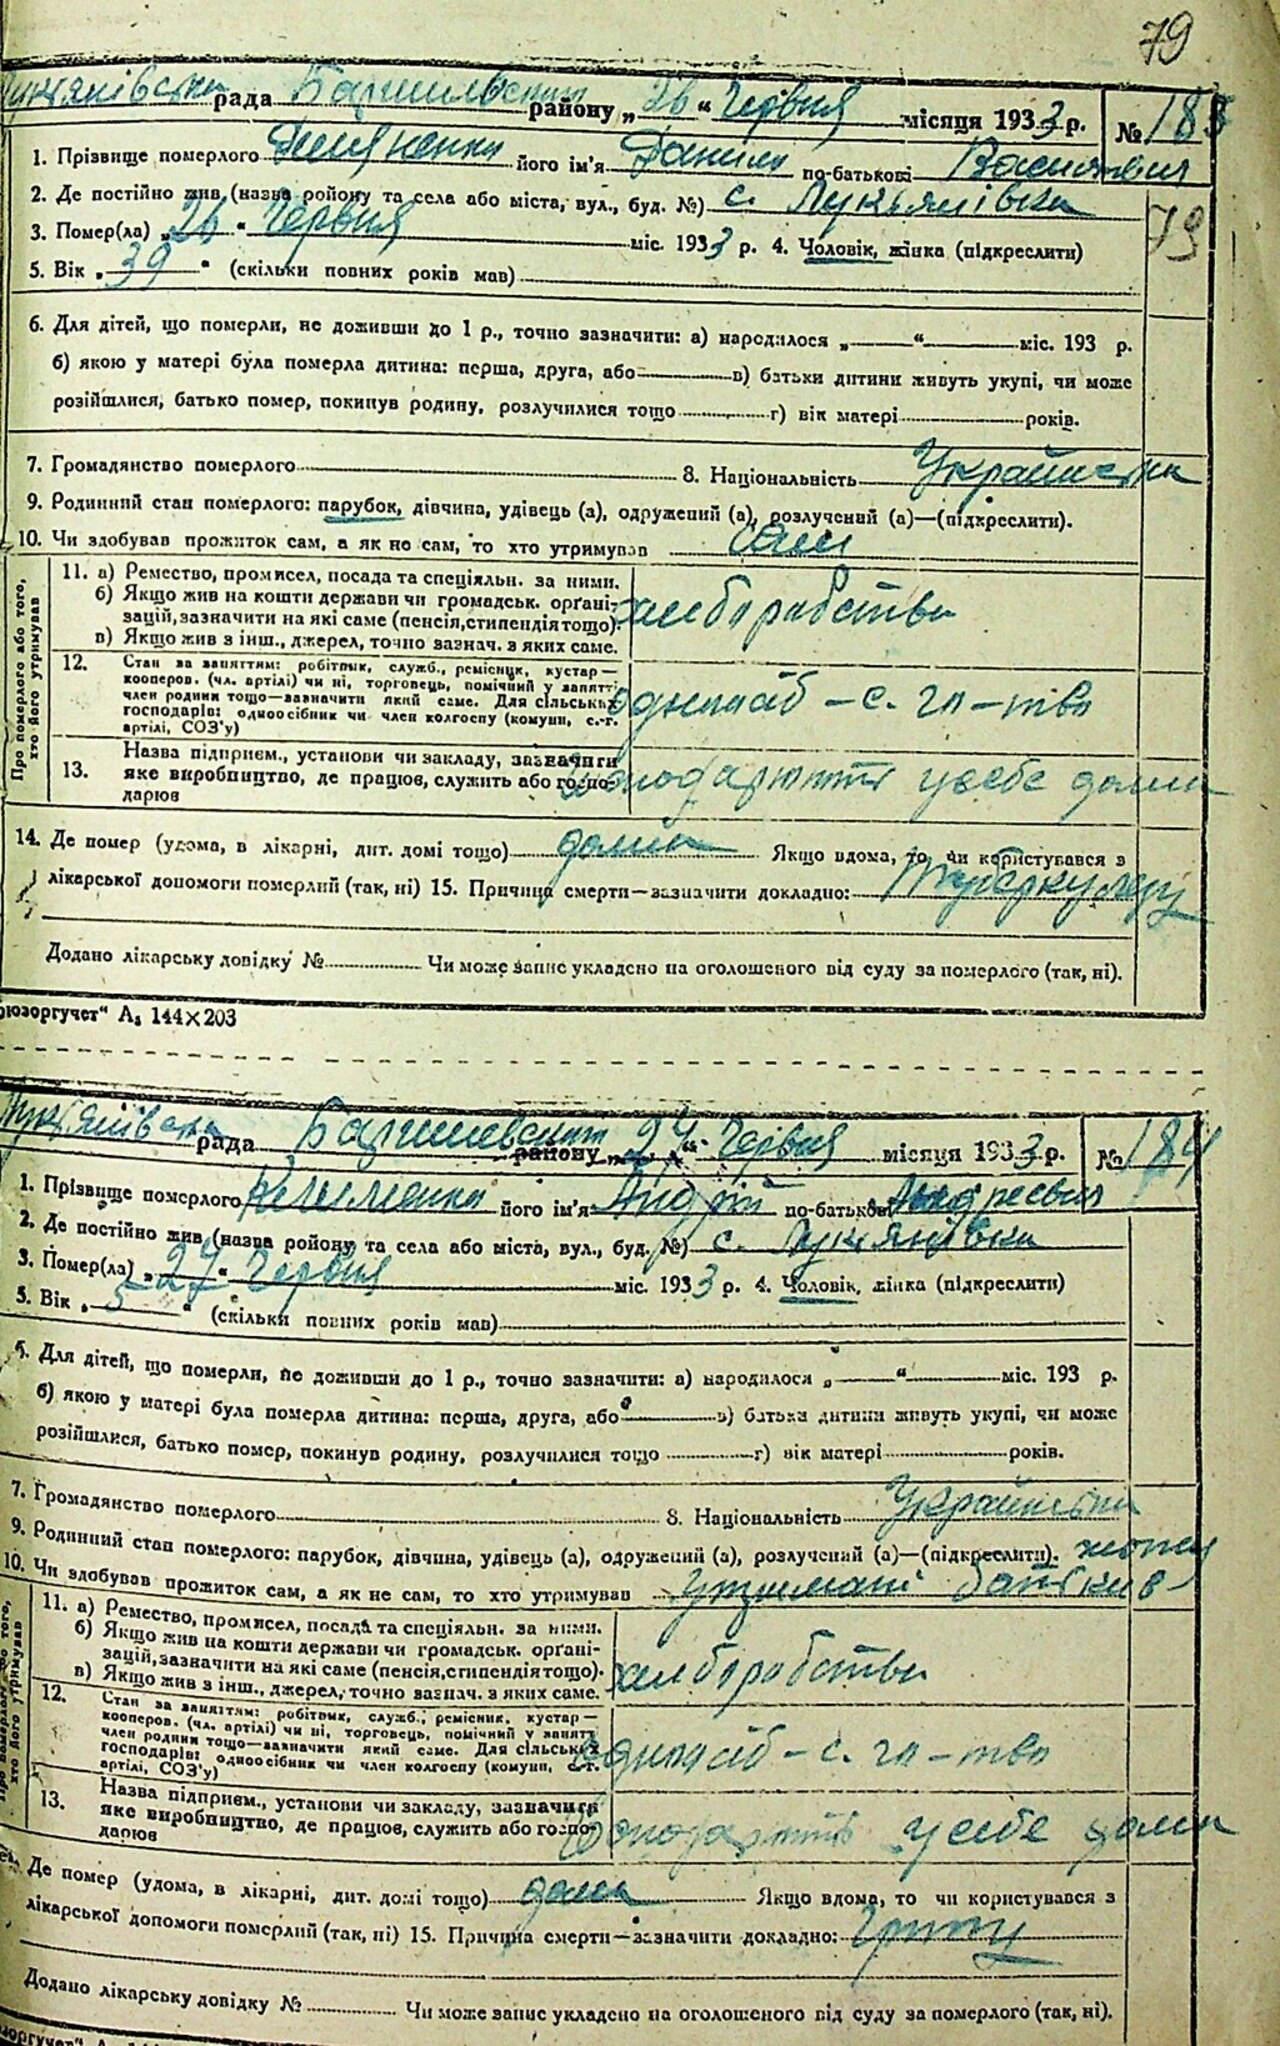 79
Лукянівська рада Баришевський району „26" Червня місяця 1933 р. № 183
1. Прізвище померлого його ім'я Данило по-батькові Васильович
2. Де постійно жив (назва ройону та села або міста, вул., буд. №) с. Лукьянівка
79
3. Помер(ла) „26" Червня міс. 1933 р. 4. Чоловік, жінка (підкреслити)
5. Вік „39" (скільки повних років мав)
6. Для дітей, що померли, не доживши до 1 р., точно зазначити: а) народилося „ " міс. 193 р.
б) якою у матері була померла дитина: перша, друга, або в) батьки дитини живуть укупі, чи може
розійшлися, батько помер, покинув родину, розлучилися тощо г) вік матері років.
7. Громадянство померлого 8. Національність
9. Родинний стан померлого: парубок, дівчина, удівець (а), одружений (а), розлучений (а)—(підкреслити).
10. Чи здобував прожиток сам, а як не сам, то хто утримував сам
Про померлого або того, хто його утримував
11. а) Ремество, промисел, посада та спеціяльн. за ними.
б) Якщо жив на кошти держави чи громадськ. орґані-
зацій, зазначити на які саме (пенсія, стипендія тощо). хліборобство
в) Якщо жив з інш., джерел, точно зазнач. з яких саме.
12. Стан за заняттям: робітник, служб., ремісник, кустар—
кооперов. (чл. артілі) чи ні, торговець, помічний у занятті
член родини тощо—зазначити який саме. Для сільських одноосіб – с. гп – тво
господарів: одноосібник чи член колгоспу (комуни, с.-г.
артілі, СОЗ'у)
13. Назва підприєм., установи чи закладу, зазначити
яке виробництво, де працює, служить або госпо- у себе дома
дарює
14. Де помер (удома, в лікарні, дит. домі тощо) дома Якщо вдома, то чи користувався з
лікарської допомоги померлий (так, ні) 15. Причина смерти—зазначити докладно: Туберкульоз
Додано лікарську довідку № Чи може запис укладено на оголошеного від суду за померлого (так, ні).
юзоргучет" А₅ 144×203
Лукянівська рада Баришевський району „27" Червня місяця 1933 р. № 184
1. Прізвище померлого Клименко його ім'я Андрій по-батькові Андреевич
2. Де постійно жив (назва ройону та села або міста, вул., буд. №) с. Лукянівка
3. Помер(ла) „27" Червня міс. 1933 р. 4. Чоловік, жінка (підкреслити)
5. Вік „5" (скільки повних років мав)
6. Для дітей, що померли, не доживши до 1 р., точно зазначити: а) народилося „ " міс. 193 р.
б) якою у матері була померла дитина: перша, друга, або в) батьки дитини живуть укупі, чи може
розійшлися, батько помер, покинув родину, розлучилися тощо г) вік матері років.
7. Громадянство померлого 8. Національність
9. Родинний стан померлого: парубок, дівчина, удівець (а), одружений (а), розлучений (а)—(підкреслити).
10. Чи здобував прожиток сам, а як не сам, то хто утримував
того, хто його утримував
11. а) Ремество, промисел, посада та спеціяльн. за ними.
б) Якщо жив на кошти держави чи громадськ. орґані-
зацій, зазначити на які саме (пенсія, стипендія тощо). хліборобство
в) Якщо жив з інш., джерел, точно зазнач. з яких саме.
12. Стан за заняттям: робітник, служб., ремісник, кустар—
кооперов. (чл. артілі) чи ні, торговець, помічний у занятті
член родини тощо—зазначити який саме. Для сільських одноосіб – с. гп – тво
господарів: одноосібник чи член колгоспу (комуни, с.-г.
артілі, СОЗ'у)
13. Назва підприєм., установи чи закладу, зазначити
яке виробництво, де працює, служить або госпо- у себе дома
дарює
Де помер (удома, в лікарні, дит. домі тощо) дома Якщо вдома, то чи користувався з
лікарської допомоги померлий (так, ні) 15. Причина смерти—зазначити докладно: Грипу
Додано лікарську довідку № Чи може запис укладено на оголошеного від суду за померлого (так, ні).